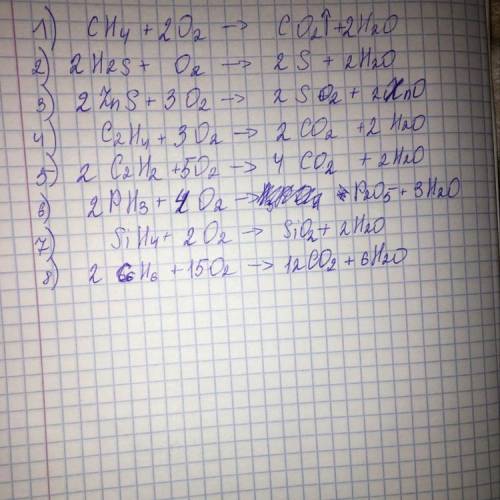 1) CH4 + 2O2 → CO2↑ + 2H2O
2) 2H2S + O2 → 2S + 2H2O
3) 2ZnS + 3O2 → 2SO2 + 2ZnO
4) C2H4 + 3O2 → 2CO2 + 2H2O
5) 2C2H2 + 5O2 → 4CO2 + 2H2O
6) 2PH3 + 4O2 → P2O5 + 3H2O
7) SiH4 + 2O2 → SiO2 + 2H2O
8) 2C6H6 + 15O2 → 12CO2 + 6H2O